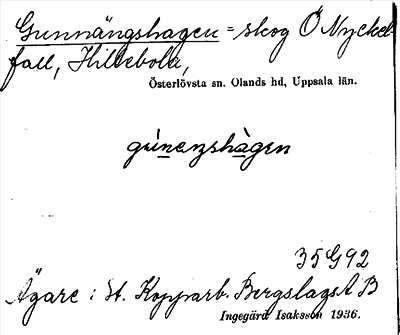 Gunnängshagen = skog Ö Nyckel-
fall, Hillebola,
Österlövsta sn. Olands hd, Uppsala län.
gu̇nenzhàgen
35G92
Ägare : St. Kopparb. Bergslags A B
Ingegärd Isaksson 1936.